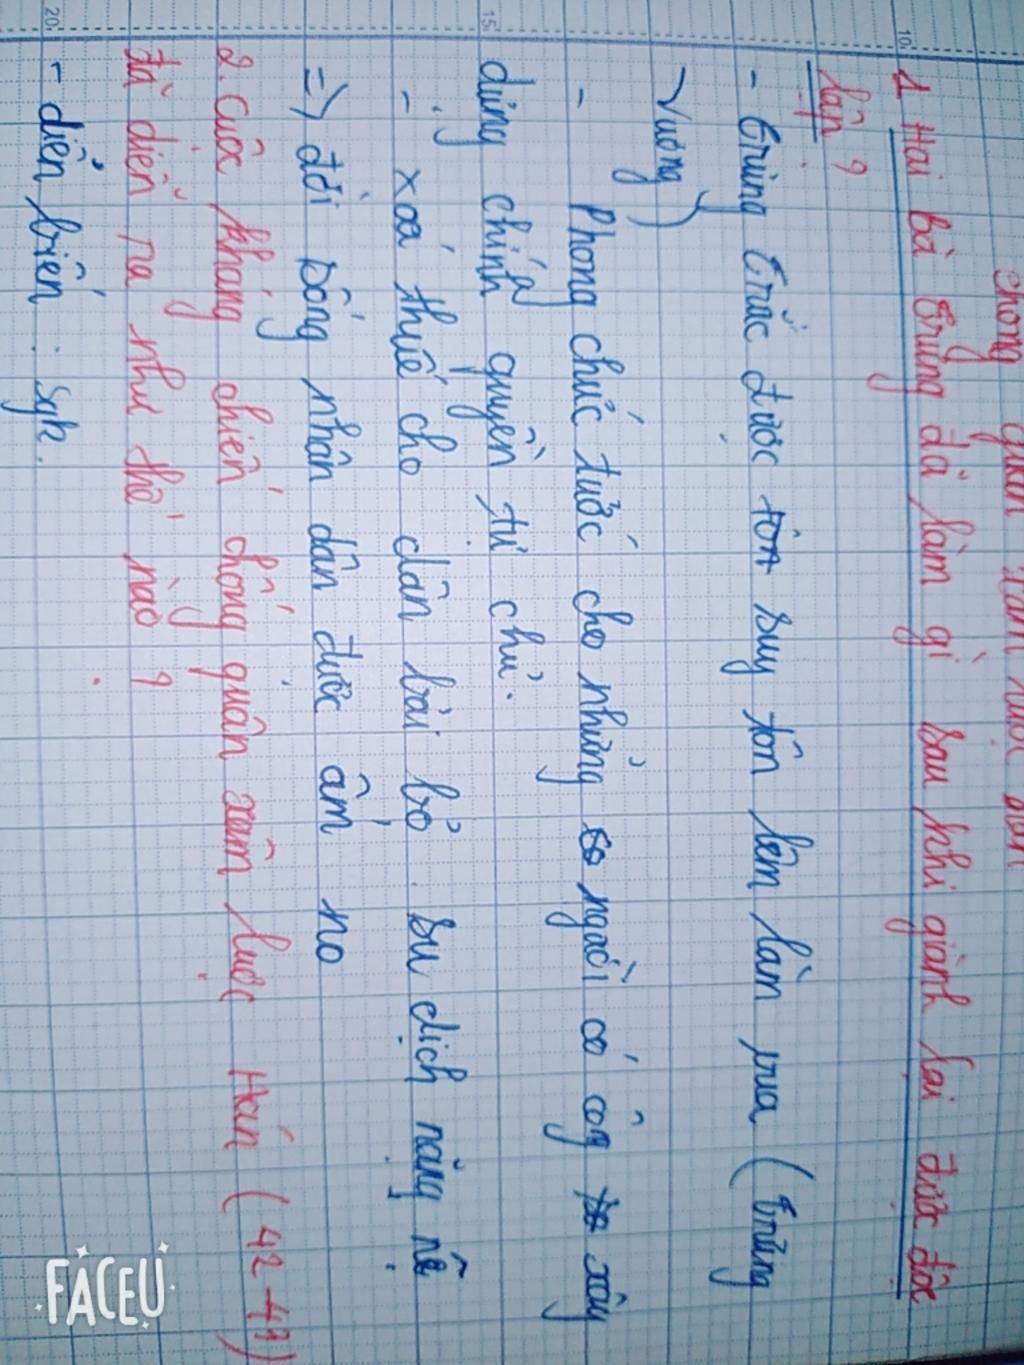 chống quân xâm lược Hán
1 Hai bà Trưng đã làm gì sau khi giành lại được độc
lập ?
- Trưng Trắc được suy tôn lên làm vua (Trưng
Vương)
- Phong chức tước cho những người có công xây
dựng chính quyền tự chủ.
- xoá thuế cho dân bãi bỏ sư dịch nặng nề
=> đời sống nhân dân được ấm no
2. Cuộc kháng chiến chống quân xâm lược Hán (42-43)
đã diễn ra như thế nào ?
- diễn biến : sgk.
10
15
20
FACEU